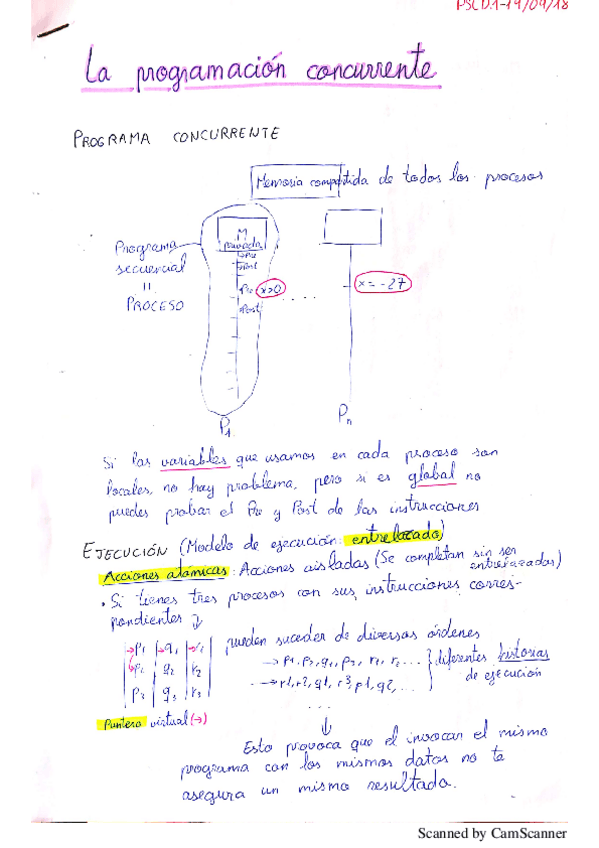 PSCD.1-19/09/18
La programación concurrente
PROGRAMA CONCURRENTE
Memoria compartida de todos los procesos
M
privada
Programa
secuencial
=
PROCESO
Pre
Post
Pre x>0
Post
.....
x = -27
P1
Pn
Si las variables que usamos en cada proceso son
locales, no hay problema, pero si es global no
puedes probar el Pre y Post de las instrucciones
EJECUCIÓN (Modelo de ejecución: entrelazado)
Acciones atómicas: Acciones aisladas (Se completan sin ser
entrelazadas)
• Si tienes tres procesos con sus instrucciones corres-
pondientes
pueden suceder de diversos órdenes
→p1 q1 →r1
→p2 q2 r2
p3 q3 r3
→ p1, p2, q1, p3, r1, r2, ...
→ r1, r2, q1, r3, p1, q2, ...
...
diferentes historias
de ejecución
Puntero virtual (→)
Esto provoca que el invocar el mismo
programa con los mismos datos no te
asegura un mismo resultado.
Scanned by CamScanner